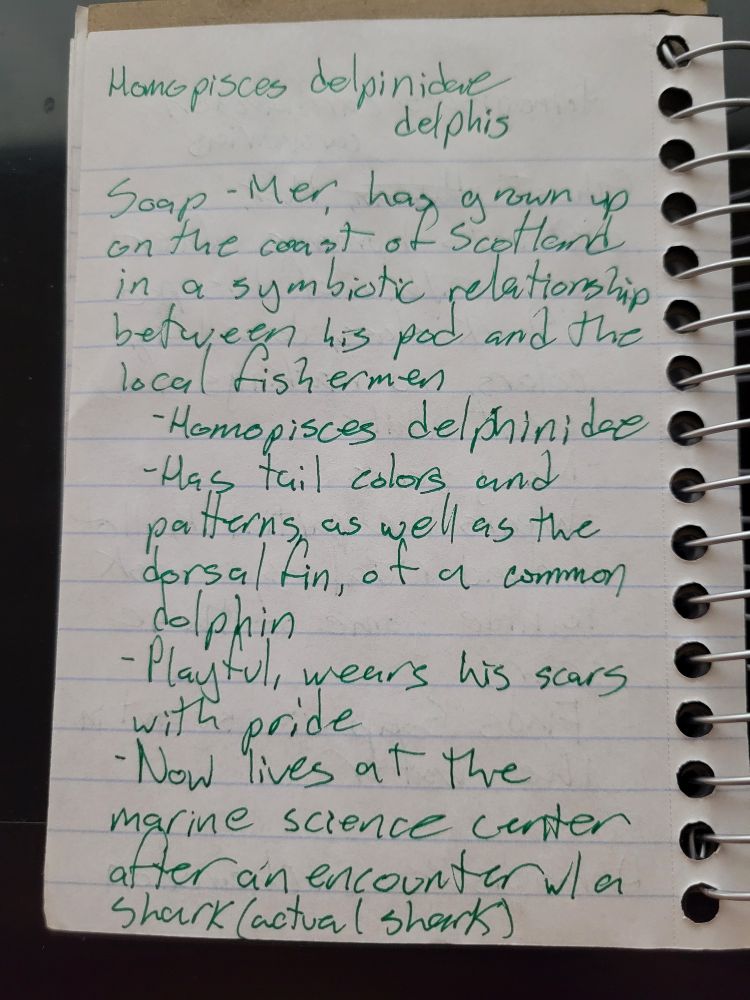 Homopisces delpinidae
delphis
Soap - Mer, has grown up
on the coast of Scotland
in a symbiotic relationship
between his pod and the
local fishermen
- Homopisces delphinidae
- Has tail colors and
patterns, as well as the
dorsal fin, of a common
dolphin
- Playful, wears his scars
with pride
- Now lives at the
marine science center
after an encounter w/ a
shark (actual shark)